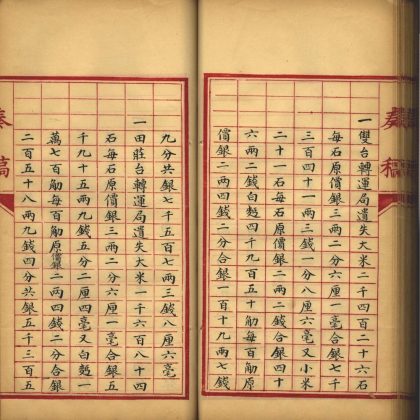 奏稿
一雙台轉運局遺失大米二千四百二十六石
每石原價銀三兩二分六厘一毫合銀七千
三百四十一兩三錢一分八厘六毫又小米
二十一石每石原價銀二兩二錢合銀四十
六兩二錢白麪四千九百五十觔每百觔原
價銀二兩四錢二分合銀一百十九兩七錢
九分共銀七千五百七兩三錢八厘六毫
一田莊台轉運局遺失大米一千六百八十四
石每石原價銀三兩二分六厘一毫合銀五
千九十五兩九錢五分二厘四毫又白麪一
萬七百觔每百觔原價銀二兩四錢二分合銀
二百五十八兩九錢四分共銀五千三百五
奏稿